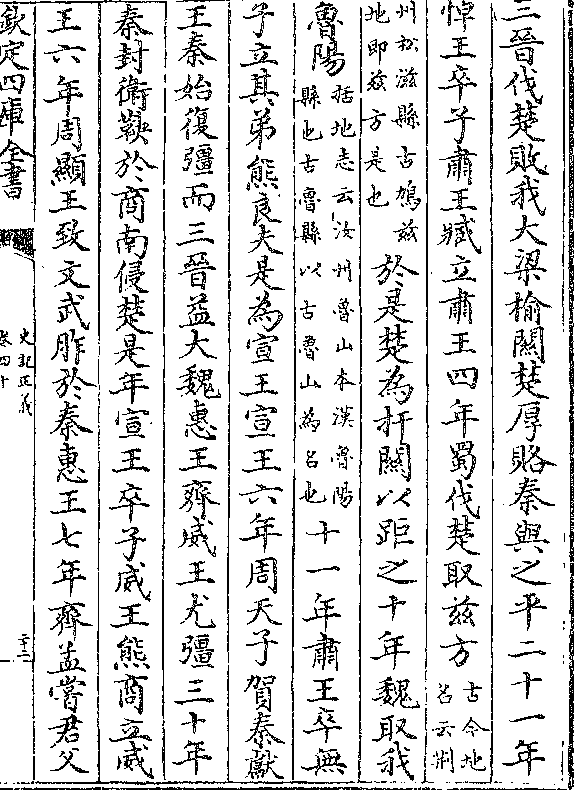 三晉伐楚敗我大梁榆關楚厚賂秦與之平二十一年
悼王卒子肅王臧立肅王四年蜀伐楚取兹方古今地名云荆
州松滋縣古鳩兹地即兹方是也於是楚為扞關以距之十年魏取我
魯陽括地志云汝州魯山本漢魯陽縣也古魯縣以古魯山為名也十一年肅王卒無
子立其弟熊良夫是為宣王宣王六年周天子賀秦獻
王秦始復彊而三晉益大魏惠王齊威王尤彊三十年
秦封衛鞅於商南侵楚是年宣王卒子威王熊商立威
王六年周顯王致文武胙於秦惠王七年齊孟嘗君父
欽定四庫全書
史記正義
卷四十
二十三